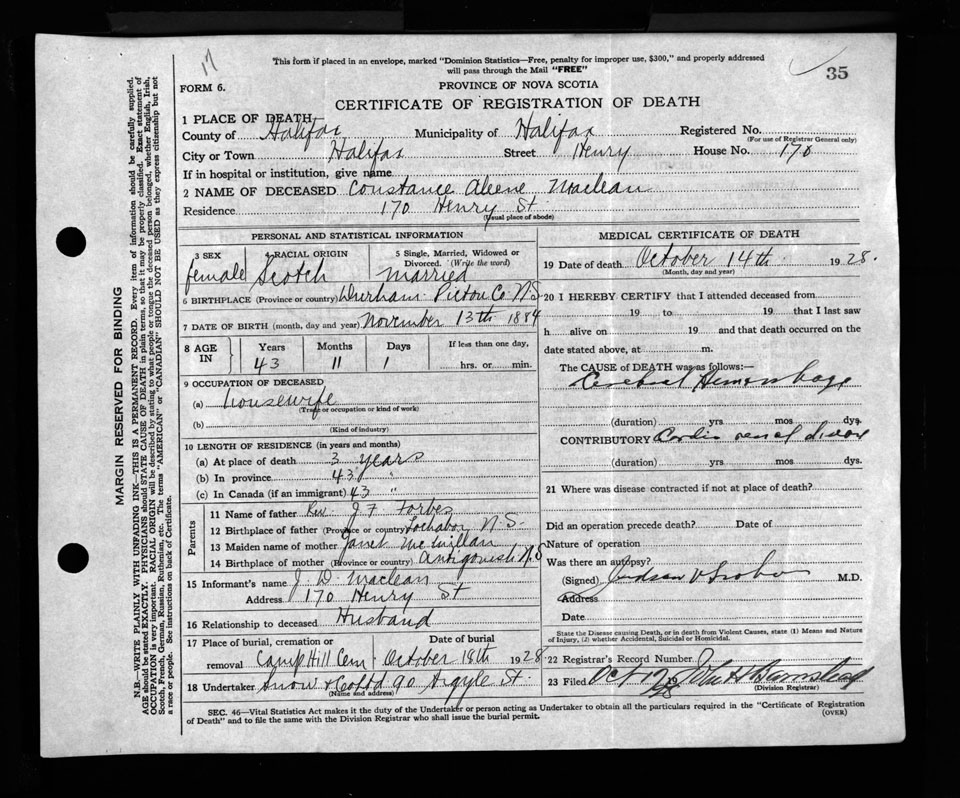 17
This form if placed in an envelope, marked "Dominion Statistics—Free, penalty for improper use, $300," and properly addressed
will pass through the Mail "FREE"
35
FORM 6.
PROVINCE OF NOVA SCOTIA
CERTIFICATE OF REGISTRATION OF DEATH
1 PLACE OF DEATH
County of Halifax Municipality of Halifax Registered No.
(For use of Registrar General only)
City or Town Halifax Street Henry House No. 170
If in hospital or institution, give name
2 NAME OF DECEASED Constance Aleene Maclean
Residence 170 Henry St
(Usual place of abode)
PERSONAL AND STATISTICAL INFORMATION
3 SEX female
4 RACIAL ORIGIN Scotch
5 Single, Married, Widowed or
Divorced. (Write the word)
Married
6 BIRTHPLACE (Province or country) Durham Pictou Co NS
7 DATE OF BIRTH (month, day and year) November 13th 1884
8 AGE IN Years Months Days If less than one day,
43 11 1 hrs. or min.
9 OCCUPATION OF DECEASED
(a) Housewife
(Trade or occupation or kind of work)
(b)
(Kind of industry)
10 LENGTH OF RESIDENCE (in years and months)
(a) At place of death 3 years
(b) In province 43 "
(c) In Canada (if an immigrant) 43 "
Parents
11 Name of father Rev. J F Forbes
12 Birthplace of father (Province or country) Lochabor N.S.
13 Maiden name of mother Janet McMillan
14 Birthplace of mother (Province or country) Antigonish N.S
15 Informant's name J. D. Maclean
Address 170 Henry St
16 Relationship to deceased Husband
17 Place of burial, cremation or removal Camp Hill Cem. Date of burial October 18th 1928
18 Undertaker Snow & Co Ltd 90 Argyle St.
(Name and address)
MEDICAL CERTIFICATE OF DEATH
19 Date of death October 14th 1928.
(Month, day and year)
20 I HEREBY CERTIFY that I attended deceased from
19 to 19 that I last saw
h alive on 19 and that death occurred on the
date stated above, at m.
The CAUSE of DEATH was as follows:
Cerebral Hemorrhage
(duration) yrs mos dys.
CONTRIBUTORY Cardio renal disease
(duration) yrs mos dys.
21 Where was disease contracted if not at place of death?
Did an operation precede death? Date of
Nature of operation
Was there an autopsy?
(Signed) Judson V M.D.
Address
Date
State the Disease causing Death, or in death from Violent Causes, state (1) Means and Nature
of Injury, (2) whether Accidental, Suicidal or Homicidal.
22 Registrar's Record Number
23 Filed Oct 17 1928 John H Barnstead
(Division Registrar)
SEC. 46—Vital Statistics Act makes it the duty of the Undertaker or person acting as Undertaker to obtain all the particulars required in the "Certificate of Registration
of Death" and to file the same with the Division Registrar who shall issue the burial permit.
(OVER)
MARGIN RESERVED FOR BINDING
N.B.—WRITE PLAINLY WITH UNFADING INK—THIS IS A PERMANENT RECORD. Every item of information should be carefully supplied.
AGE should be stated EXACTLY. PHYSICIANS should STATE CAUSE OF DEATH in plain terms, so that it may be properly classified. Exact statement of
OCCUPATION is very important. RACIAL ORIGIN will be described by stating to what people or tongue the deceased person belonged, whether English, Irish,
Scotch, French, German, Russian, Ruthenian, etc. The terms "AMERICAN" or "CANADIAN" SHOULD NOT BE USED as they express citizenship but not
a race or people. See instructions on back of Certificate.